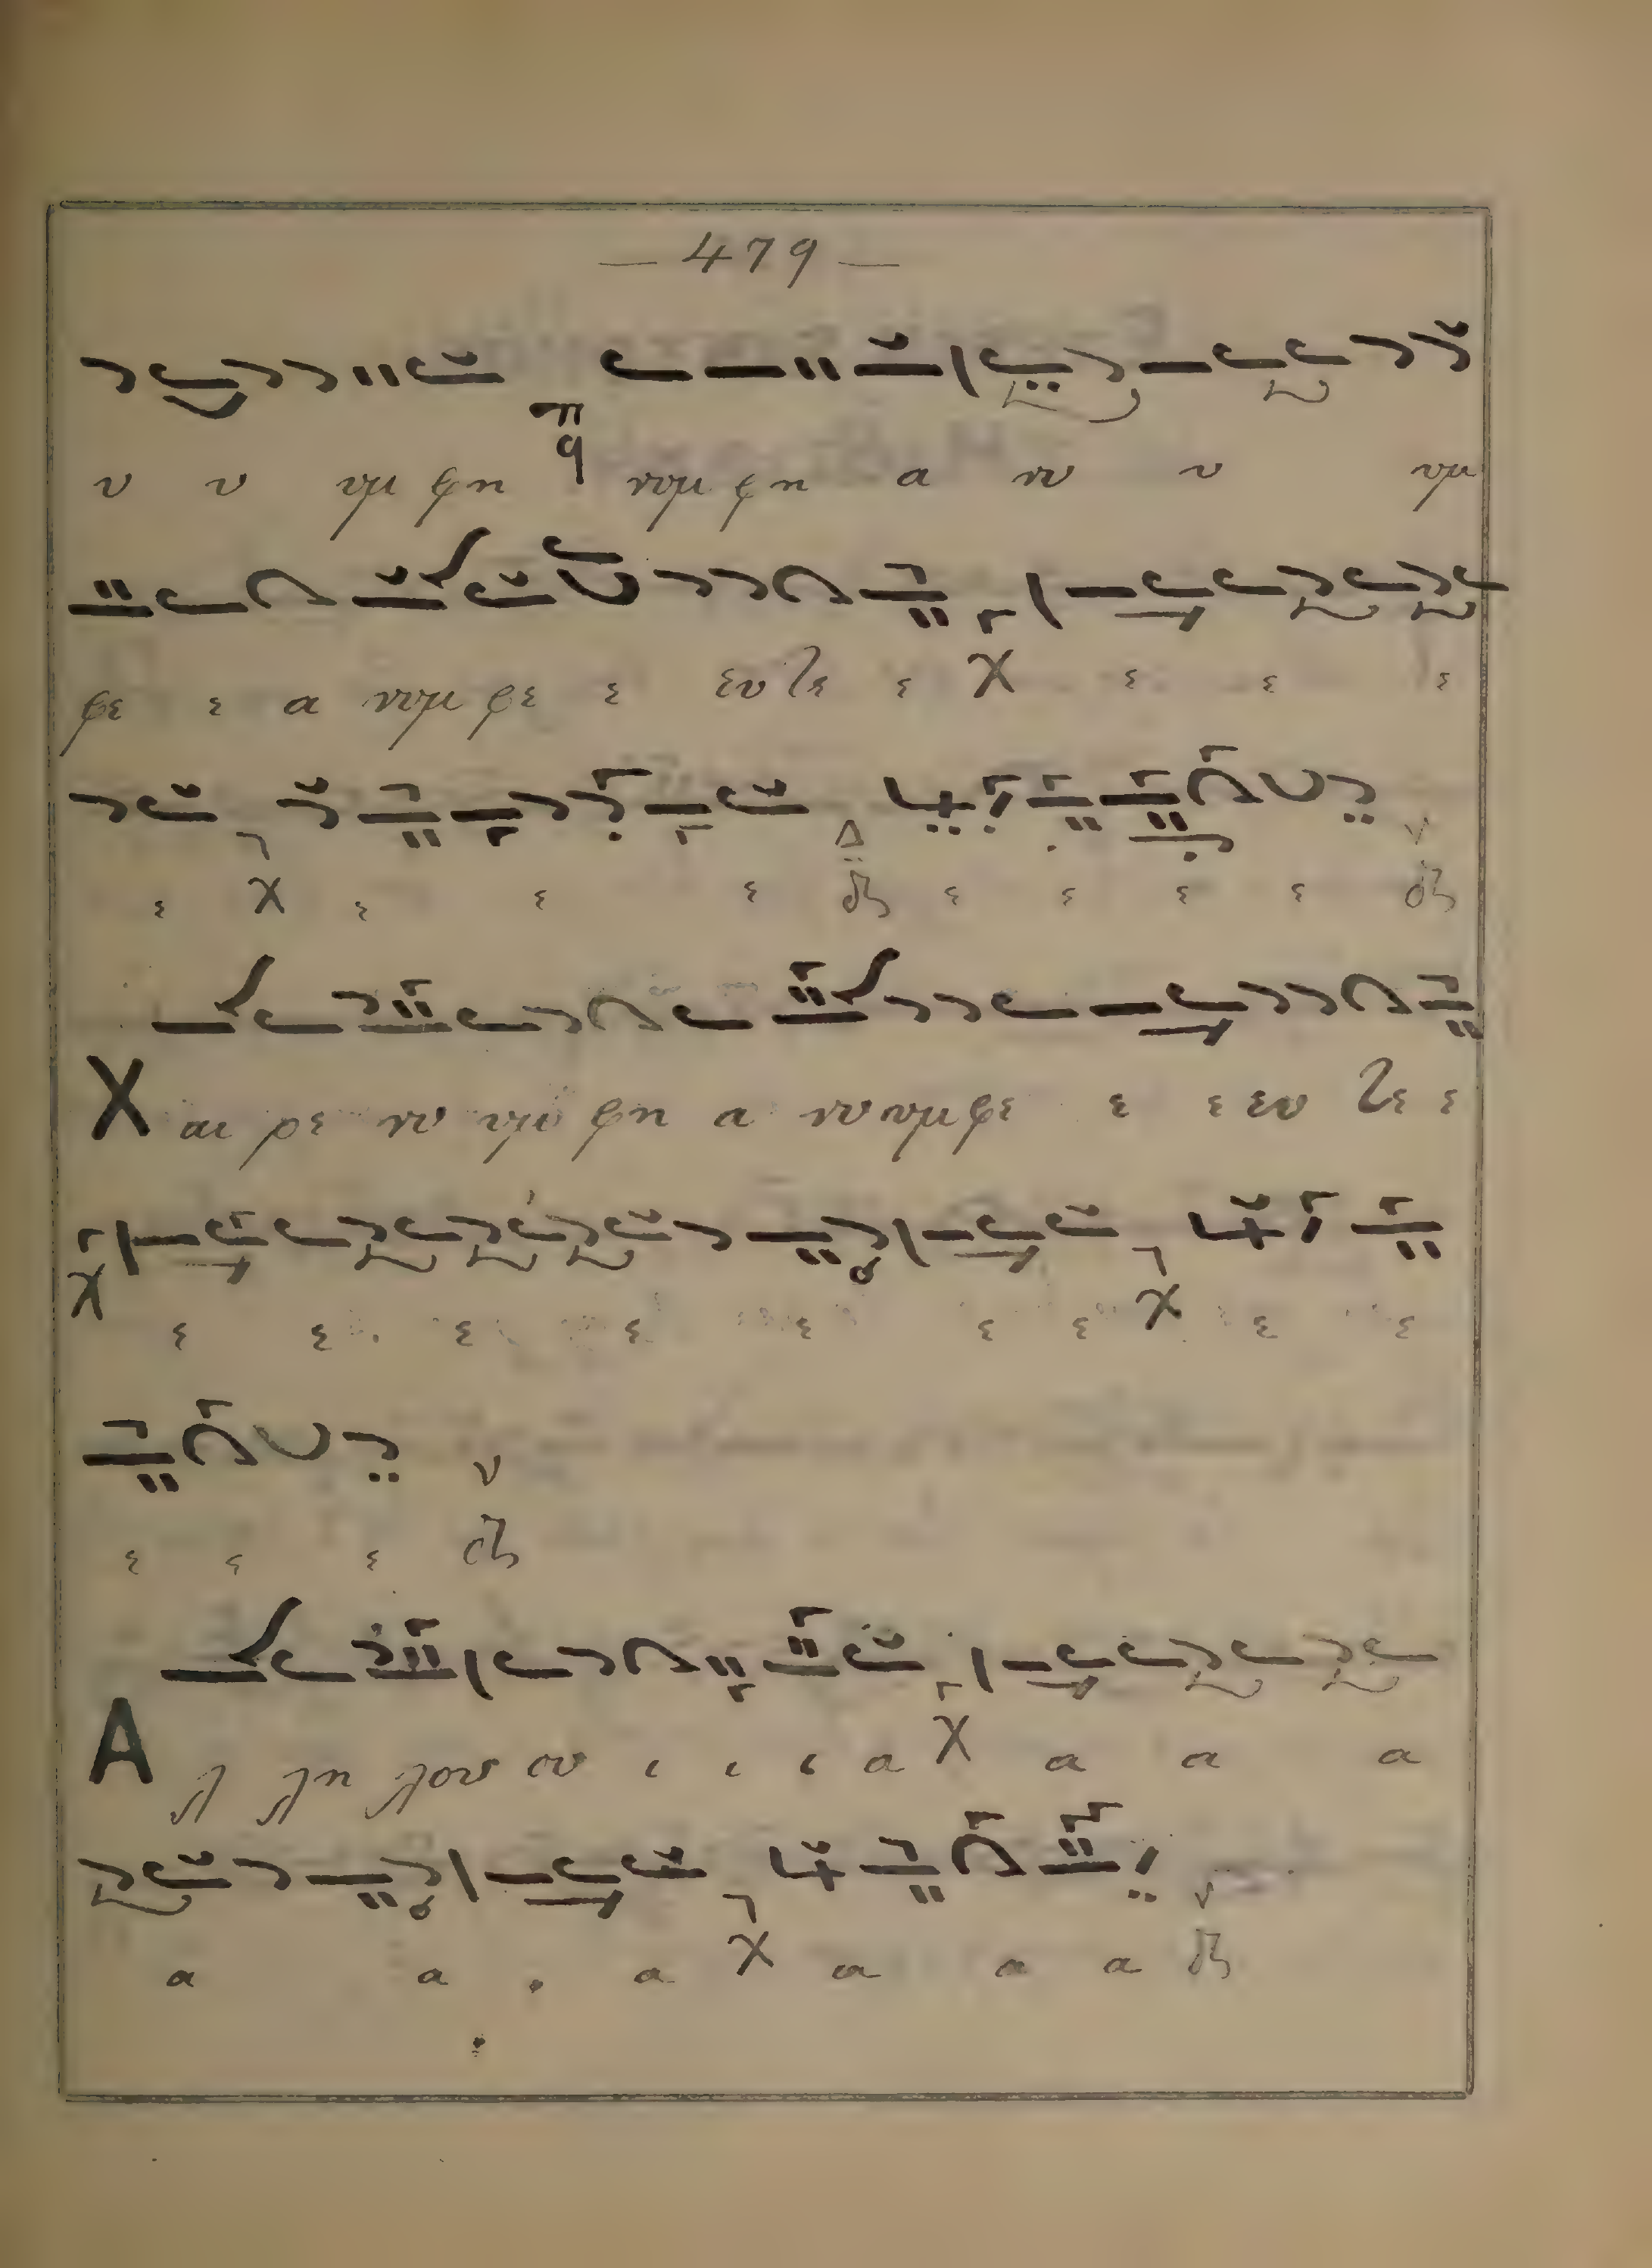 — 479 —
υ υ υμ φη νυμ φη α νυ υ υμ
φε ε α νυμ φε ε ευ τε ε χ ε ε ε
ε χ ε ε ε ε ε ε ε
Χ αι ρε νυ υμ φη α νυ υμ φε ε ε ευ τε ε
χ ε ε ε ε ε ε ε χ ε ε
ε ε ε
Α λ λη λου ου ι ι ι α χ α α α
α α α χ α α α